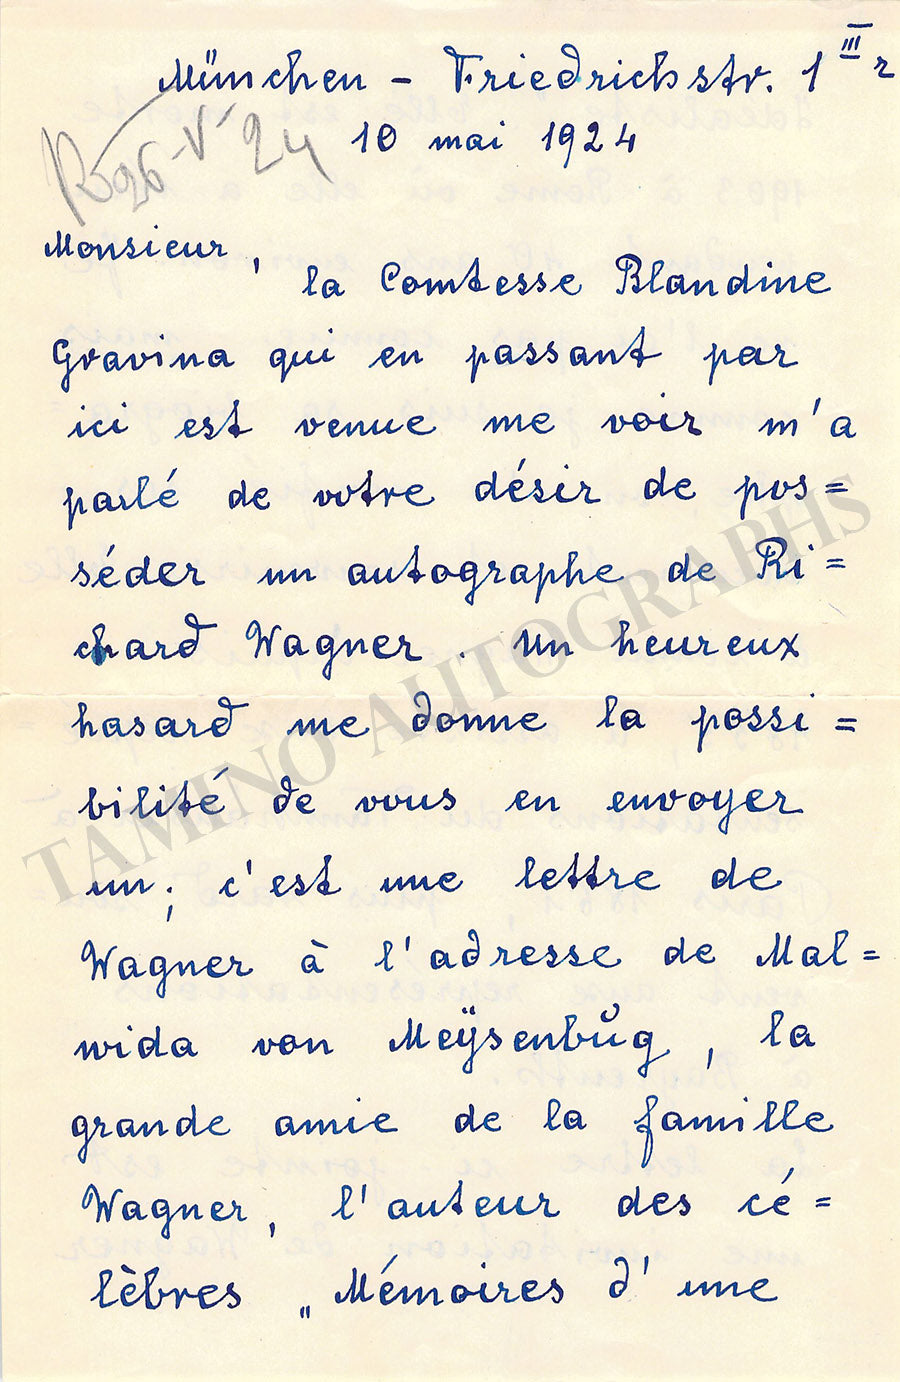 München – Friedrichstr. 1 III r
10 mai 1924
26-V 24
Monsieur,
la Comtesse Blandine
Gravina qui en passant par
ici est venue me voir m'a
parlé de votre désir de pos=
séder un autographe de Ri=
chard Wagner. Un heureux
hasard me donne la possi=
bilité de vous en envoyer
un; c'est une lettre de
Wagner à l'adresse de Mal=
wida von Meÿsenbŭg, la
grande amie de la famille
Wagner, l'auteur des cé=
lèbres „Mémoires d'une
TAMINO AUTOGRAPHS